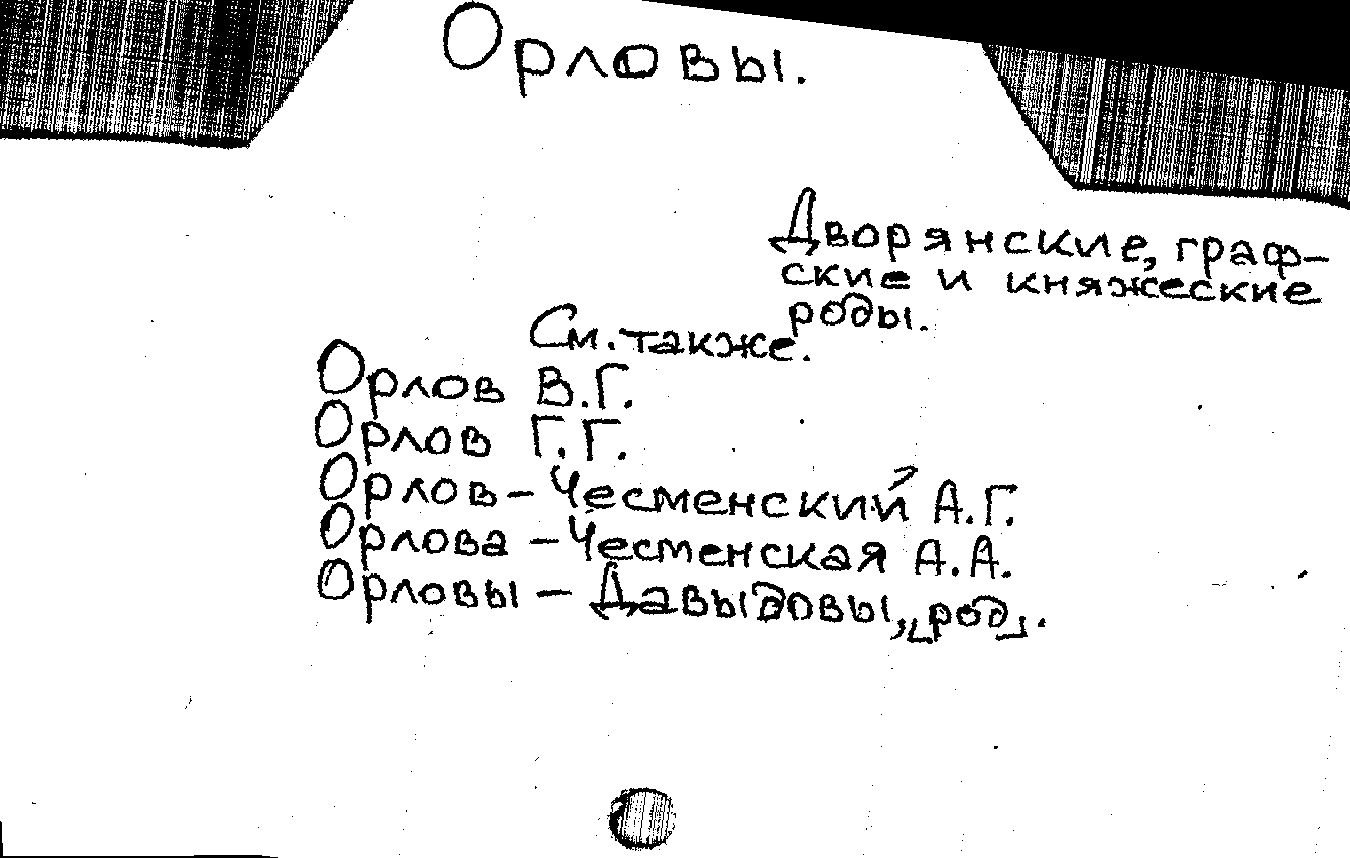 Орловы.
Дворянские, граф-
ские и княжеские
роды.
См. также.
Орлов В.Г.
Орлов Г.Г.
Орлов - Чесменский А.Г.
Орлова - Чесменская А.А.
Орловы - Давыдовы, [род].